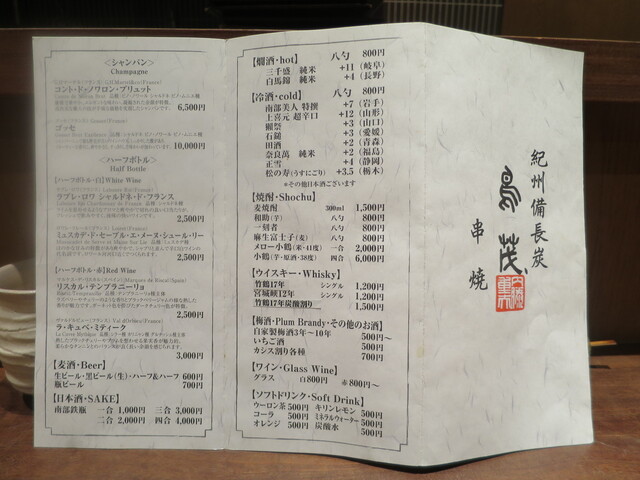 <シャンパン>
Champagne
コント・ド・ノワロン・ブリュット
6,500円
ゴッセ
10,000円
<ハーフボトル>
Half Bottle
【ハーフボトル・白】White Wine
ラプレ・ロワ シャルドネ・ド・フランス
2,500円
ミュスカデ・ド・セーブル・エ・メーヌ・シュール・リー
2,500円
【ハーフボトル・赤】Red Wine
リスカル・テンプラニーリョ
2,500円
ラ・キュベ・ミティーク
3,000円
【麦酒・Beer】
生ビール・黒ビール(生)・ハーフ&ハーフ 600円
瓶ビール 700円
【日本酒・SAKE】
南部鉄瓶 一合 1,000円 三合 3,000円
二合 2,000円 四合 4,000円
【燗酒・hot】 八勺 800円
三千盛 純米 +11 (岐阜)
白馬錦 純米 +4 (長野)
【冷酒・cold】 八勺 800円
南部美人 特撰 +7 (岩手)
上喜元 超辛口 +12 (山形)
獺祭 +3 (山口)
石鎚 +3 (愛媛)
田酒 +2 (青森)
奈良萬 純米 +2 (福島)
正雪 +4 (静岡)
松の寿(うすにごり) +3.5 (栃木)
*その他日本酒ございます
【焼酎・Shochu】
麦焼酎 300ml 1,500円
和助(芋) 八勺 800円
一刻者 八勺 800円
麻生富士子(麦) 八勺 800円
メロー小鶴(米・41度) 一合 2,000円
小鶴(芋・原酒・38度) 四合 6,000円
【ウイスキー・Whisky】
竹鶴17年 シングル 1,200円
宮城峡12年 シングル 1,200円
竹鶴17年炭酸割り 1,500円
【梅酒・Plum Brandy・その他のお酒】
自家製梅酒3年〜10年 500円〜
いちご酒 500円
カシス割り各種 700円
【ワイン・Glass Wine】
グラス 白800円 赤800円〜
【ソフトドリンク・Soft Drink】
ウーロン茶 500円 キリンレモン 500円
コーラ 500円 ミネラルウォーター 500円
オレンジ 500円 炭酸水 500円
紀州備長炭
串焼
鳥茂